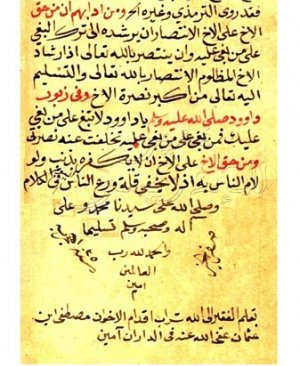 فقد روى الترمذي وغيره اخر ومن ادابهم ان من حق
الاخ على الاخ الانتصار ان يرشده الى ترك البغي
على من بغى عليه وان ينتصر بالله تعالى اذ ارشاد
الاخ المظلوم الانتصار بالله تعالى والتسليم
اليه تعالى من اكبر نصرة الاخ وفي زبور
داوود صلى الله عليه وسلم ياداوود لا تبغ على من بغى
عليك فمن بغى على من بغى عليه تخلفت عنه نصرتي
ومن حق الاخ على الاخ ان لا يكفره بذنب ولو
لام الناس به اذ لا يخفى قلة ورع الناس في الكلام
وصلى الله على سيدنا محمد وعلى
اله وصحبه وسلم تسليما
والحمد لله رب
العالمين
امين
بقلم الفقير الى الله تراب اقدام الاخوان مصطفى ابن
عثمان عفى الله عنه في الداران آمين